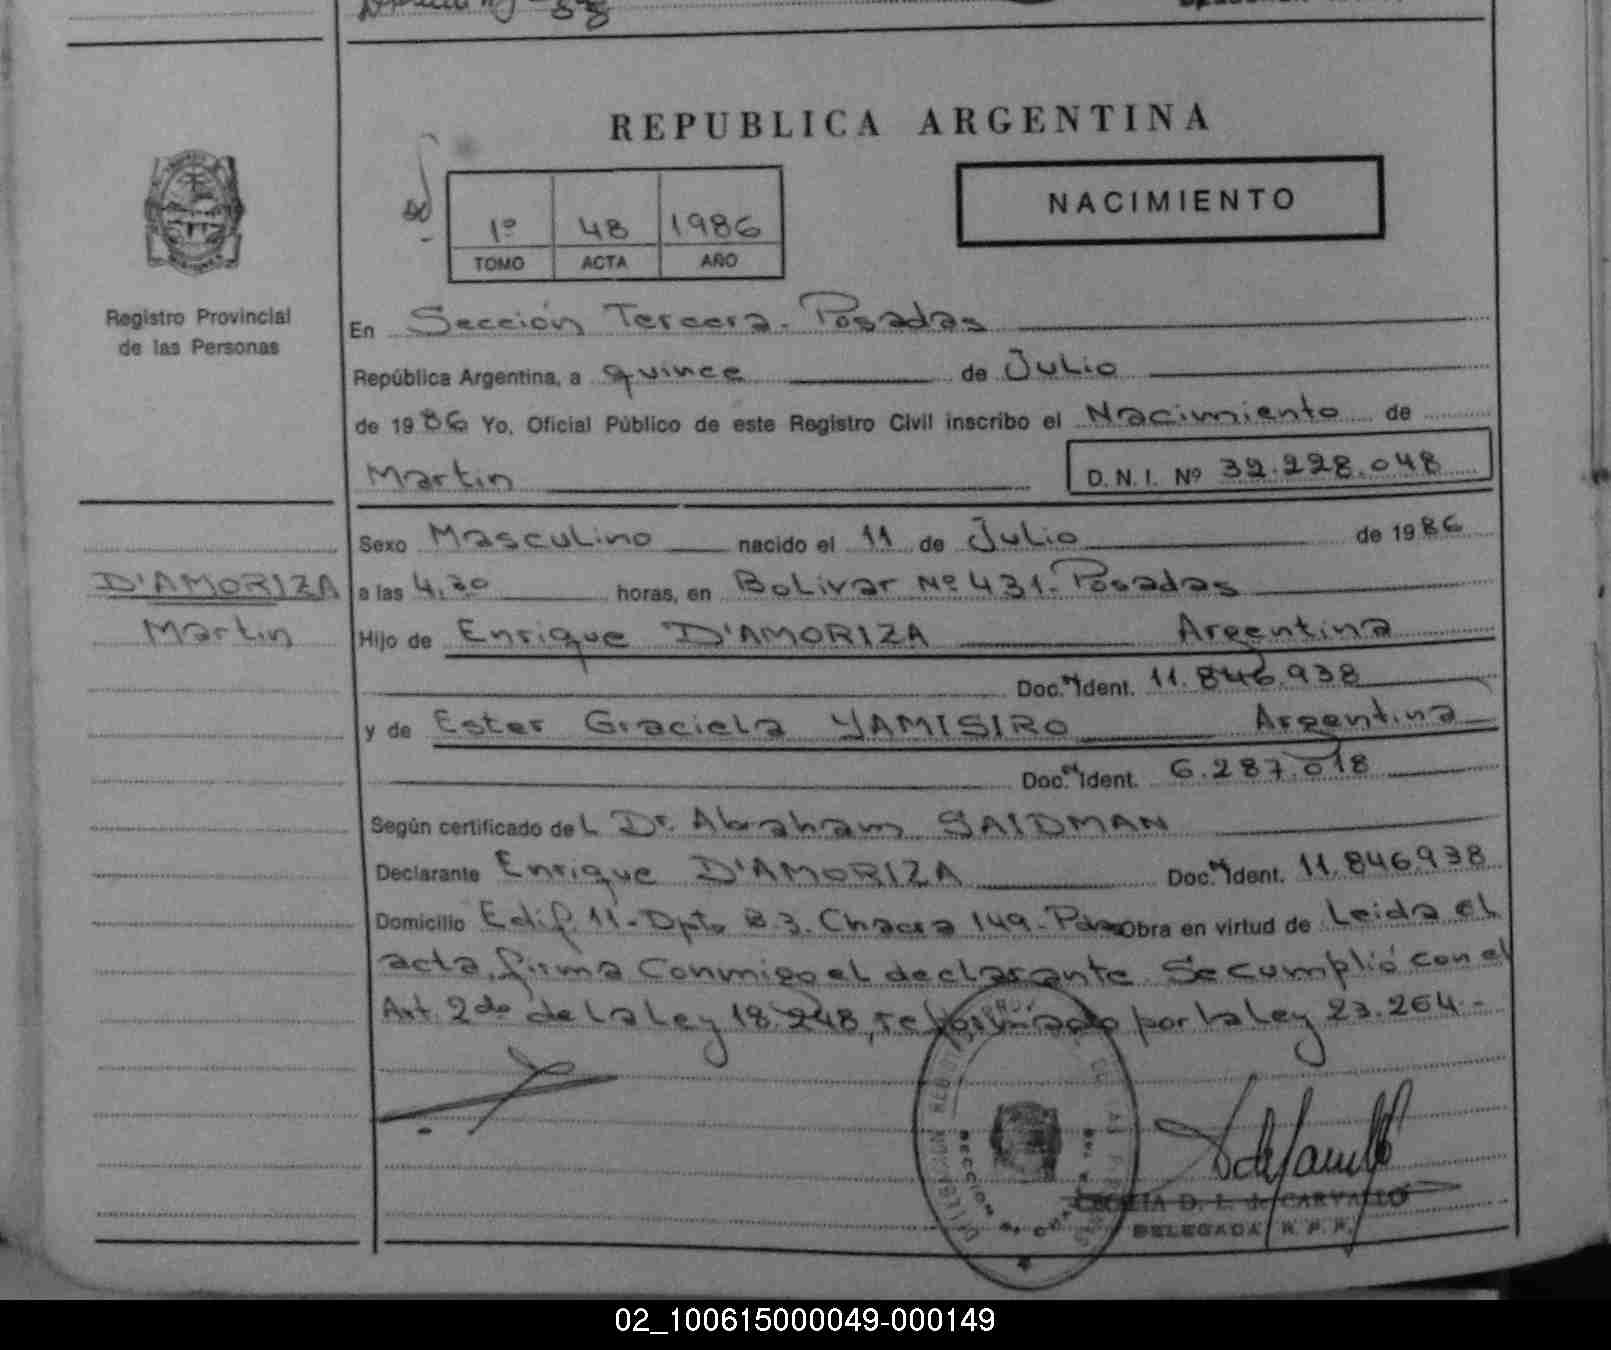 REPUBLICA ARGENTINA
NACIMIENTO
1º 48 1986
TOMO ACTA AÑO
Registro Provincial
de las Personas
En Sección Tercera - Posadas
República Argentina, a quince de Julio
de 1986 Yo, Oficial Público de este Registro Civil inscribo el Nacimiento de
Martin D.N.I. Nº 32.228.048
Sexo Masculino nacido el 11 de Julio de 1986
D'AMORIZA
Martin
a las 4,30 horas, en Bolivar Nº 431 - Posadas
Hijo de Enrique D'AMORIZA Argentina
Doc. Ident. 11.846.938
y de Ester Graciela YAMISIRO Argentina
Doc. Ident. 6.287.018
Según certificado del Dr. Abraham SAIDMAN
Declarante Enrique D'AMORIZA Doc. Ident. 11.846.938
Domicilio Edif. 11 - Dpto B.3. Chacra 149 - Pdas Obra en virtud de Leida el
acta, firma conmigo el declarante. Se cumplió con el
Art. 2do de la Ley 18.248, reformado por la Ley 23.264.-
CECILIA D. L. de CARVALLO
DELEGADA R. P. P.
02_100615000049-000149